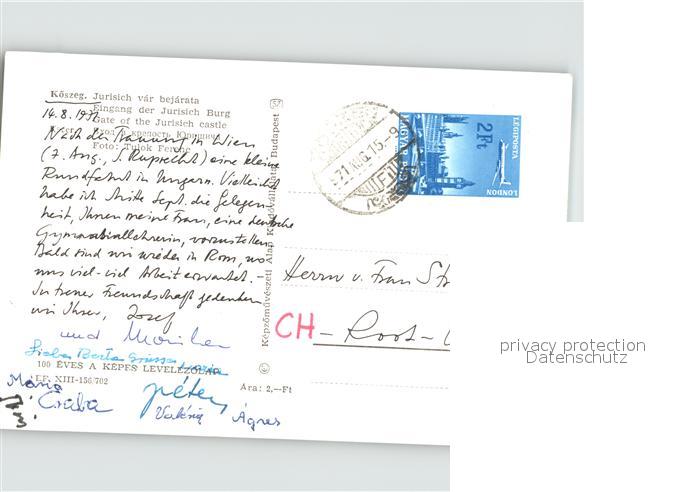 Kőszeg. Jurisich vár bejárata
Eingang der Jurisich Burg
Gate of the Jurisich castle
Вход в крепость Юришича
Foto: Tulok Ferenc
14.8.1971
Nach der Trauung in Wien
(7. Aug., S. Ruprecht) eine kleine
Rundfahrt in Ungarn. Vielleicht
habe ich Mitte Sept. die Gelegen-
heit, Ihnen meine Frau, eine deutsche
Gymnasiallehrerin, vorzustellen.
Bald sind wir wieder in Rom, wo
uns viel-viel Arbeit erwartet. –
In treuer Freundschaft gedenken
wir Ihrer, Josef
und Monika
Liebe Berta Grüsse Maria
100 ÉVES A KÉPES LEVELEZŐLAP
EF. XIII-156/702
Ára: 2,–Ft
Mária
Csaba
péter
Valéria
Ágnes
Képzőművészeti Alap Kiadóvállalata, Budapest
971.VIII.15.-9
LÉGIPOSTA
2Ft
MAGYAR POSTA
LONDON
Herrn u. Frau
CH – Root –
privacy protection
Datenschutz